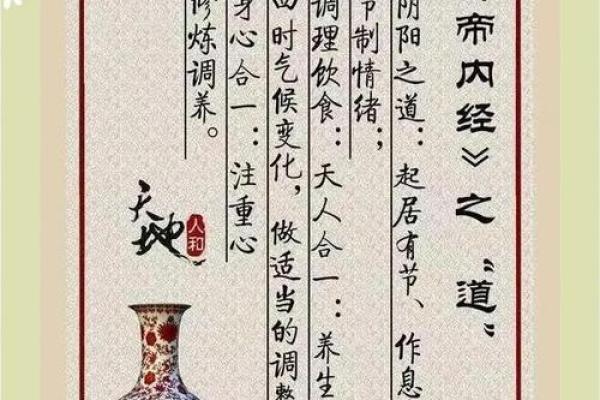 帝内经》之“道”
阴阳之道：起居有节、作息
节制情绪；
调理饮食；天人合一：养生
四时气候变化，做适当的调整
身心合一：注重心
修炼调养。
天地
人和